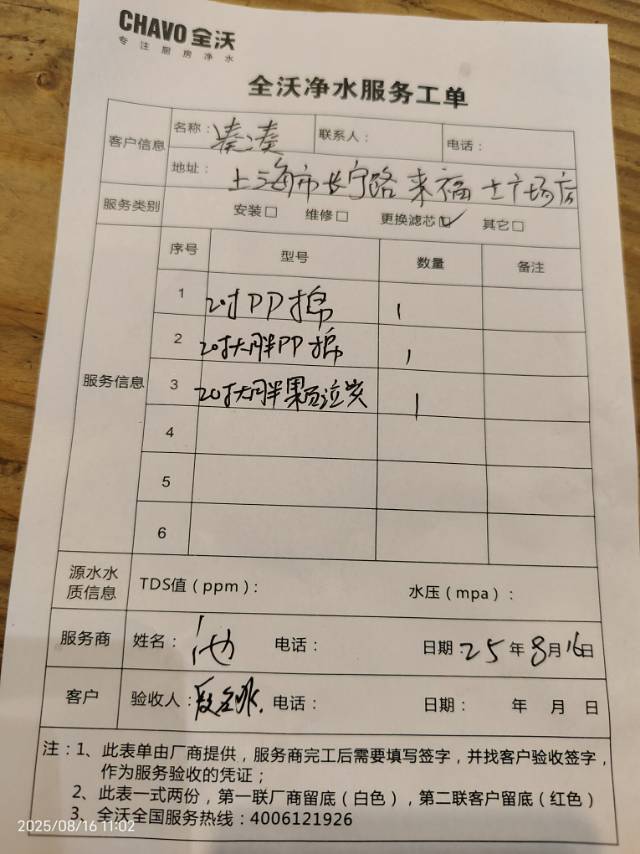 CHAVO 全沃
专注厨房净水
全沃净水服务工单
客户信息
名称：凑凑 联系人： 电话：
地址：上海市长宁路来福士广场店
服务类别 安装□ 维修□ 更换滤芯☑ 其它□
服务信息
序号 型号 数量 备注
1 20寸PP棉 1
2 20寸大胖PP棉 1
3 20寸大胖颗粒炭 1
4
5
6
源水水质信息 TDS值（ppm）： 水压（mpa）：
服务商 姓名： 电话： 日期：25年8月16日
客户 验收人： 电话： 日期： 年 月 日
注：1、此表单由厂商提供，服务商完工后需要填写签字，并找客户验收签字，
作为服务验收的凭证；
2、此表一式两份，第一联厂商留底（白色），第二联客户留底（红色）
3、全沃全国服务热线：4006121926
2025/08/16 11:02